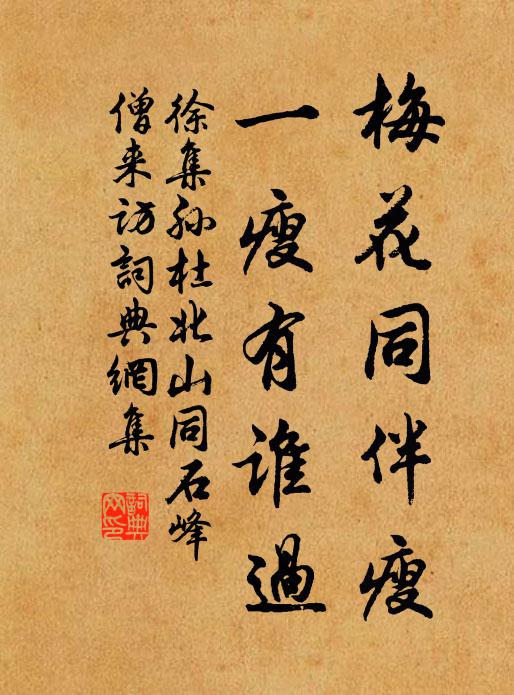 梅花同伴瘦
一瘦有谁過
徐集孙杜北山同石峰
僧来访詞典網集
詞典
网印